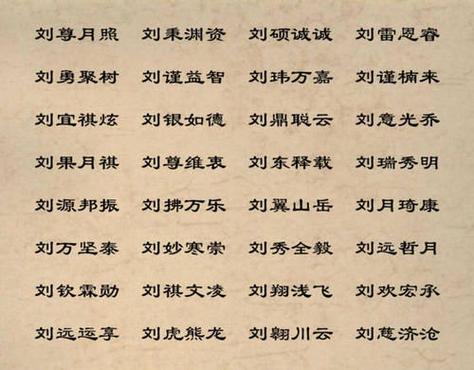 刘尊月照 刘秉渊资 刘硕诚诚 刘雷恩睿
刘勇聚树 刘谨益智 刘玮万嘉 刘谨楠来
刘宜祺炫 刘银如德 刘鼎聪云 刘意光乔
刘果月祺 刘尊维衷 刘东释载 刘瑞秀明
刘源邦振 刘拂万乐 刘翼山岳 刘月琦康
刘万坚泰 刘妙寒崇 刘秀全毅 刘远哲月
刘钦霖勋 刘祺文凌 刘翔浅飞 刘欢宏承
刘远运享 刘虎熊龙 刘翱川云 刘慈济沧